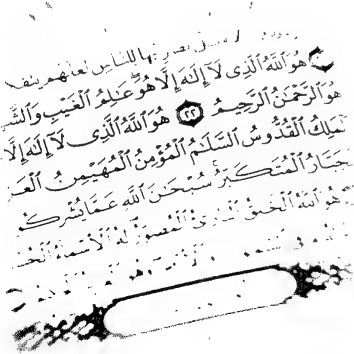 نضربها للناس لعلهم يتف
هُوَ ٱللَّهُ ٱلَّذِى لَآ إِلَٰهَ إِلَّا هُوَ عَٰلِمُ ٱلْغَيْبِ وَٱلشَّ
هُوَ ٱلرَّحْمَٰنُ ٱلرَّحِيمُ ٢٢ هُوَ ٱللَّهُ ٱلَّذِى لَآ إِلَٰهَ إِلَّا
ٱلْمَلِكُ ٱلْقُدُّوسُ ٱلسَّلَٰمُ ٱلْمُؤْمِنُ ٱلْمُهَيْمِنُ ٱلْعَز
جَبَّارُ ٱلْمُتَكَبِّرُ سُبْحَٰنَ ٱللَّهِ عَمَّا يُشْرِكُو
هُوَ ٱللَّهُ ٱلْخَٰلِقُ ٱلْبَارِئُ ٱلْمُصَوِّرُ لَهُ ٱلْأَسْمَآءُ ٱلْحُسْ